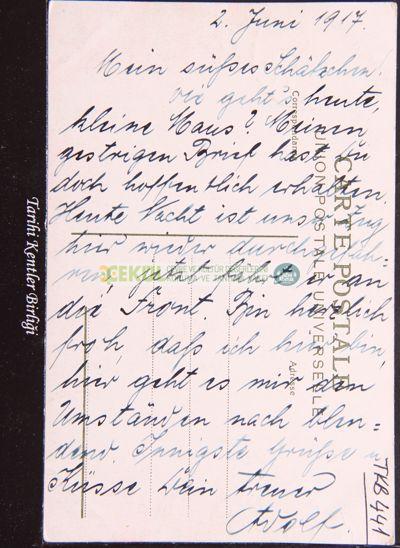 2. Juni 1917.
Mein süsses Schätzchen!
Wie geht's heute,
kleine Maus? Meinen
gestrigen Brief hast Du
doch hoffentlich erhalten.
Heute Nacht ist unser Zug
hier wieder durchgefah=
ren, jetzt fährt er an
die Front. Bin herzlich
froh, daß ich hier bin,
hier geht es mir den
Umständen nach blen=
dend. Innigste Grüße u
Küsse Dein treuer
Adolf.
CARTE POSTALE
UNION POSTALE UNIVERSELLE
Correspondance
Adresse
Tarihi Kentler Birliği
ÇEKÜL
TKB 441